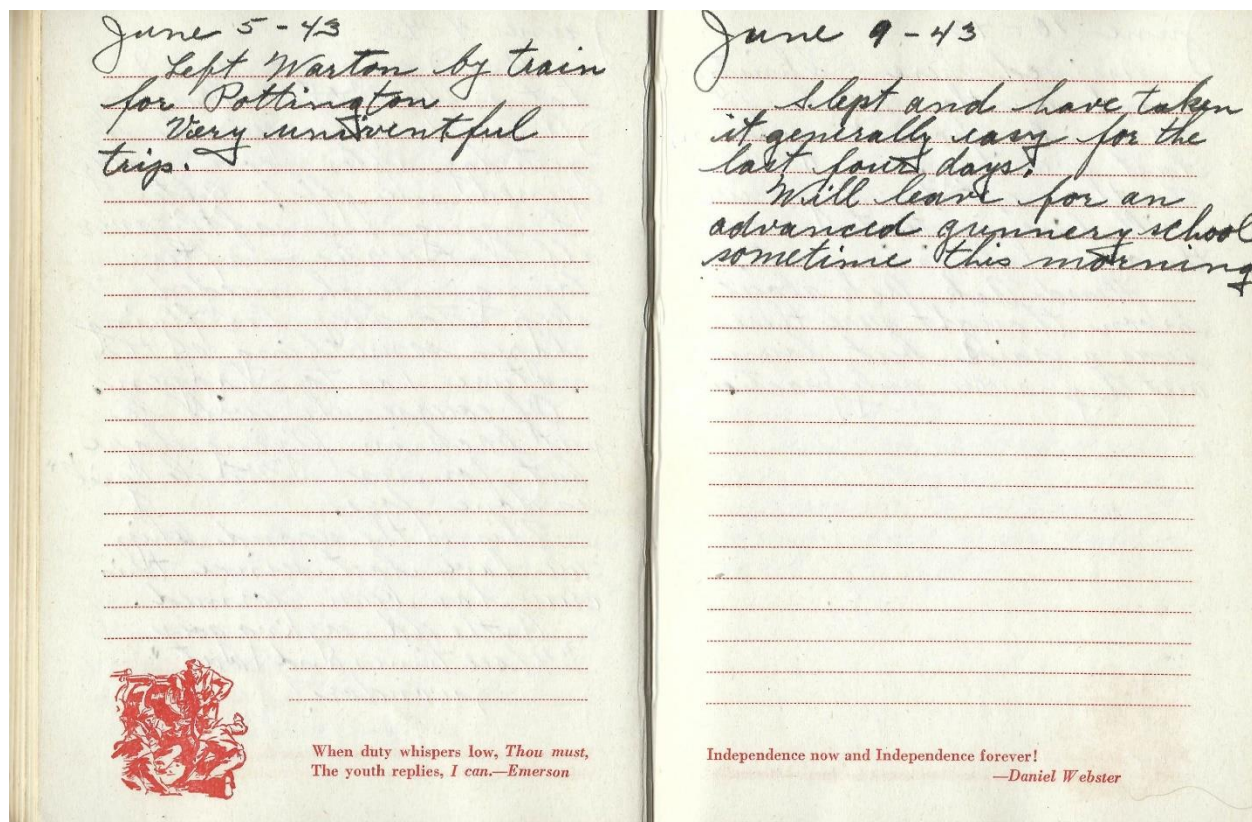 June 5 - 43
Left Warton by train
for Pottington
Very uneventful
trip.
When duty whispers low, Thou must,
The youth replies, I can.—Emerson
June 9 - 43
Slept and have taken
it generally easy for the
last four days.
Will leave for an
advanced gunnery school
sometime this morning
Independence now and Independence forever!
—Daniel Webster